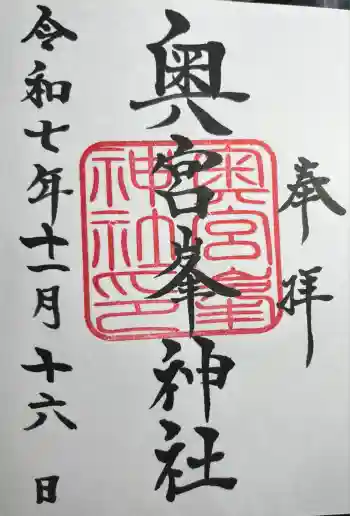 奉拝
奥宮峯神社
奥宮峯神社印
令和七年十一月十六日